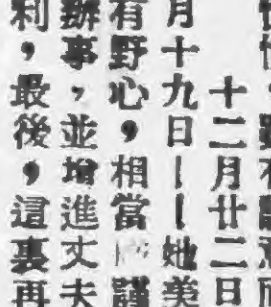 十二月廿二日
月十九日——她美
有野心，相當 謹
辦事，並增進丈夫
利，最後，這裏再